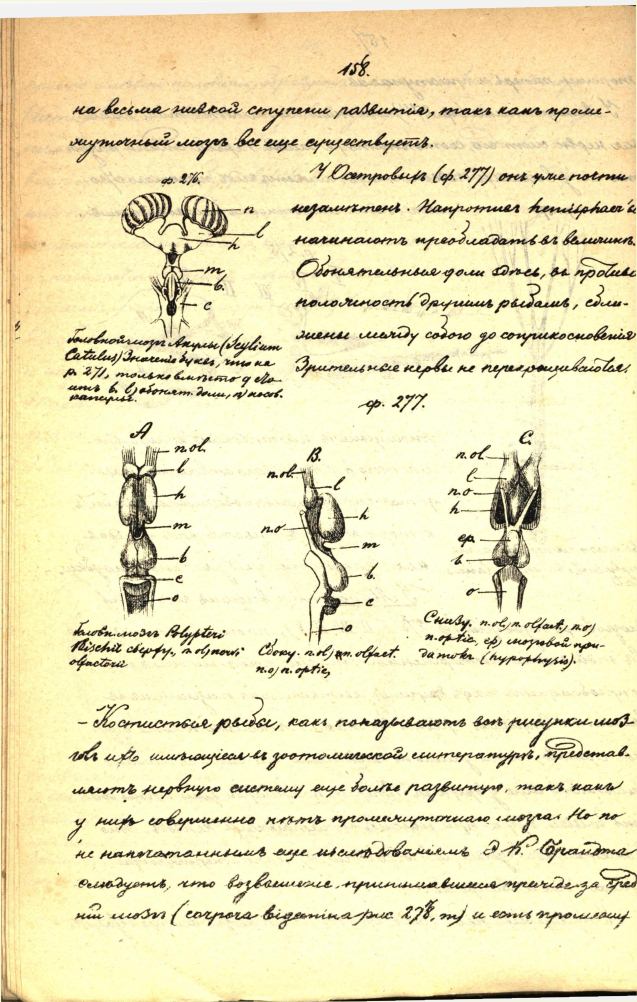 158.
на весьма низкой ступени развитія, такъ какъ проме-
жуточный мозгъ все еще существуетъ.
ф. 276.
n
l
h
m
b.
c
Головной мозгъ Акулы (Scylium
Catulus) Значеніе буквъ, что на
р. 271, только вмѣсто g
b. l) обонят. доли, n) нособ.
У Осетровыхъ (ф. 277) онъ уже почти
незамѣтенъ. Напротивъ hemisphaer'ы
начинаютъ преобладать въ величинѣ.
Обонятельныя доли здѣсь, въ противо
положность другимъ рыбамъ, сбли-
жены между собою до соприкосновенія
Зрительные нервы не перекрещиваются.
ф. 277.
A
n.ol.
l
h
m
b
c
o
B.
n.ol.
l
n.o
h
m
b.
c
o
C.
n.ol.
l
n.o
h
ep
b
o
Головн. мозгъ Polypteri
Bischit сверху, n.ol) nervi
olfactorii
Сбоку. n.ol) n. olfact.
n.o) n. optic,
Снизу. n.ol, n. olfact, n.o)
n. optic, ep) мозговой при-
датокъ (hypophysis).
– Костистыя рыбы, какъ показываютъ всѣ рисунки моз
говъ ихъ имѣющіеся въ зоотомической литературѣ, представ-
ляютъ нервную систему еще болѣе развитую, такъ какъ
у нихъ совершенно нѣтъ промежуточнаго мозга. Но по
не напечатаннымъ еще изслѣдованіямъ Э. К. Брандта
слѣдуетъ, что возвышеніе, принимавшееся прежде за сред
ній мозгъ (сочрога bigemina рис 278, m) и есть промежу